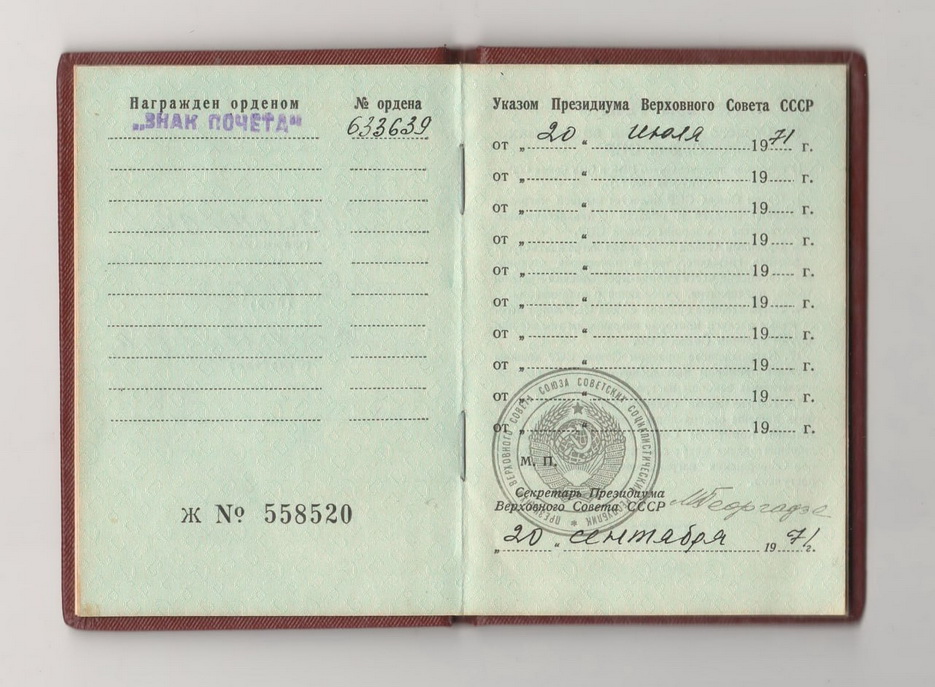 Награжден орденом
№ ордена
„ЗНАК ПОЧЕТА“
633639
Ж № 558520
Указом Президиума Верховного Совета СССР
от „ 20 “ июля 1971 г.
от „ “ 19 г.
от „ “ 19 г.
от „ “ 19 г.
от „ “ 19 г.
от „ “ 19 г.
от „ “ 19 г.
от „ “ 19 г.
от „ “ 19 г.
от „ “ 19 г.
ПРЕЗИДИУМ ВЕРХОВНОГО СОВЕТА СОЮЗА СОВЕТСКИХ СОЦИАЛИСТИЧЕСКИХ РЕСПУБЛИК
М. П.
Секретарь Президиума
Верховного Совета СССР
МГеоргадзе
„ 20 “ сентября 1971 г.